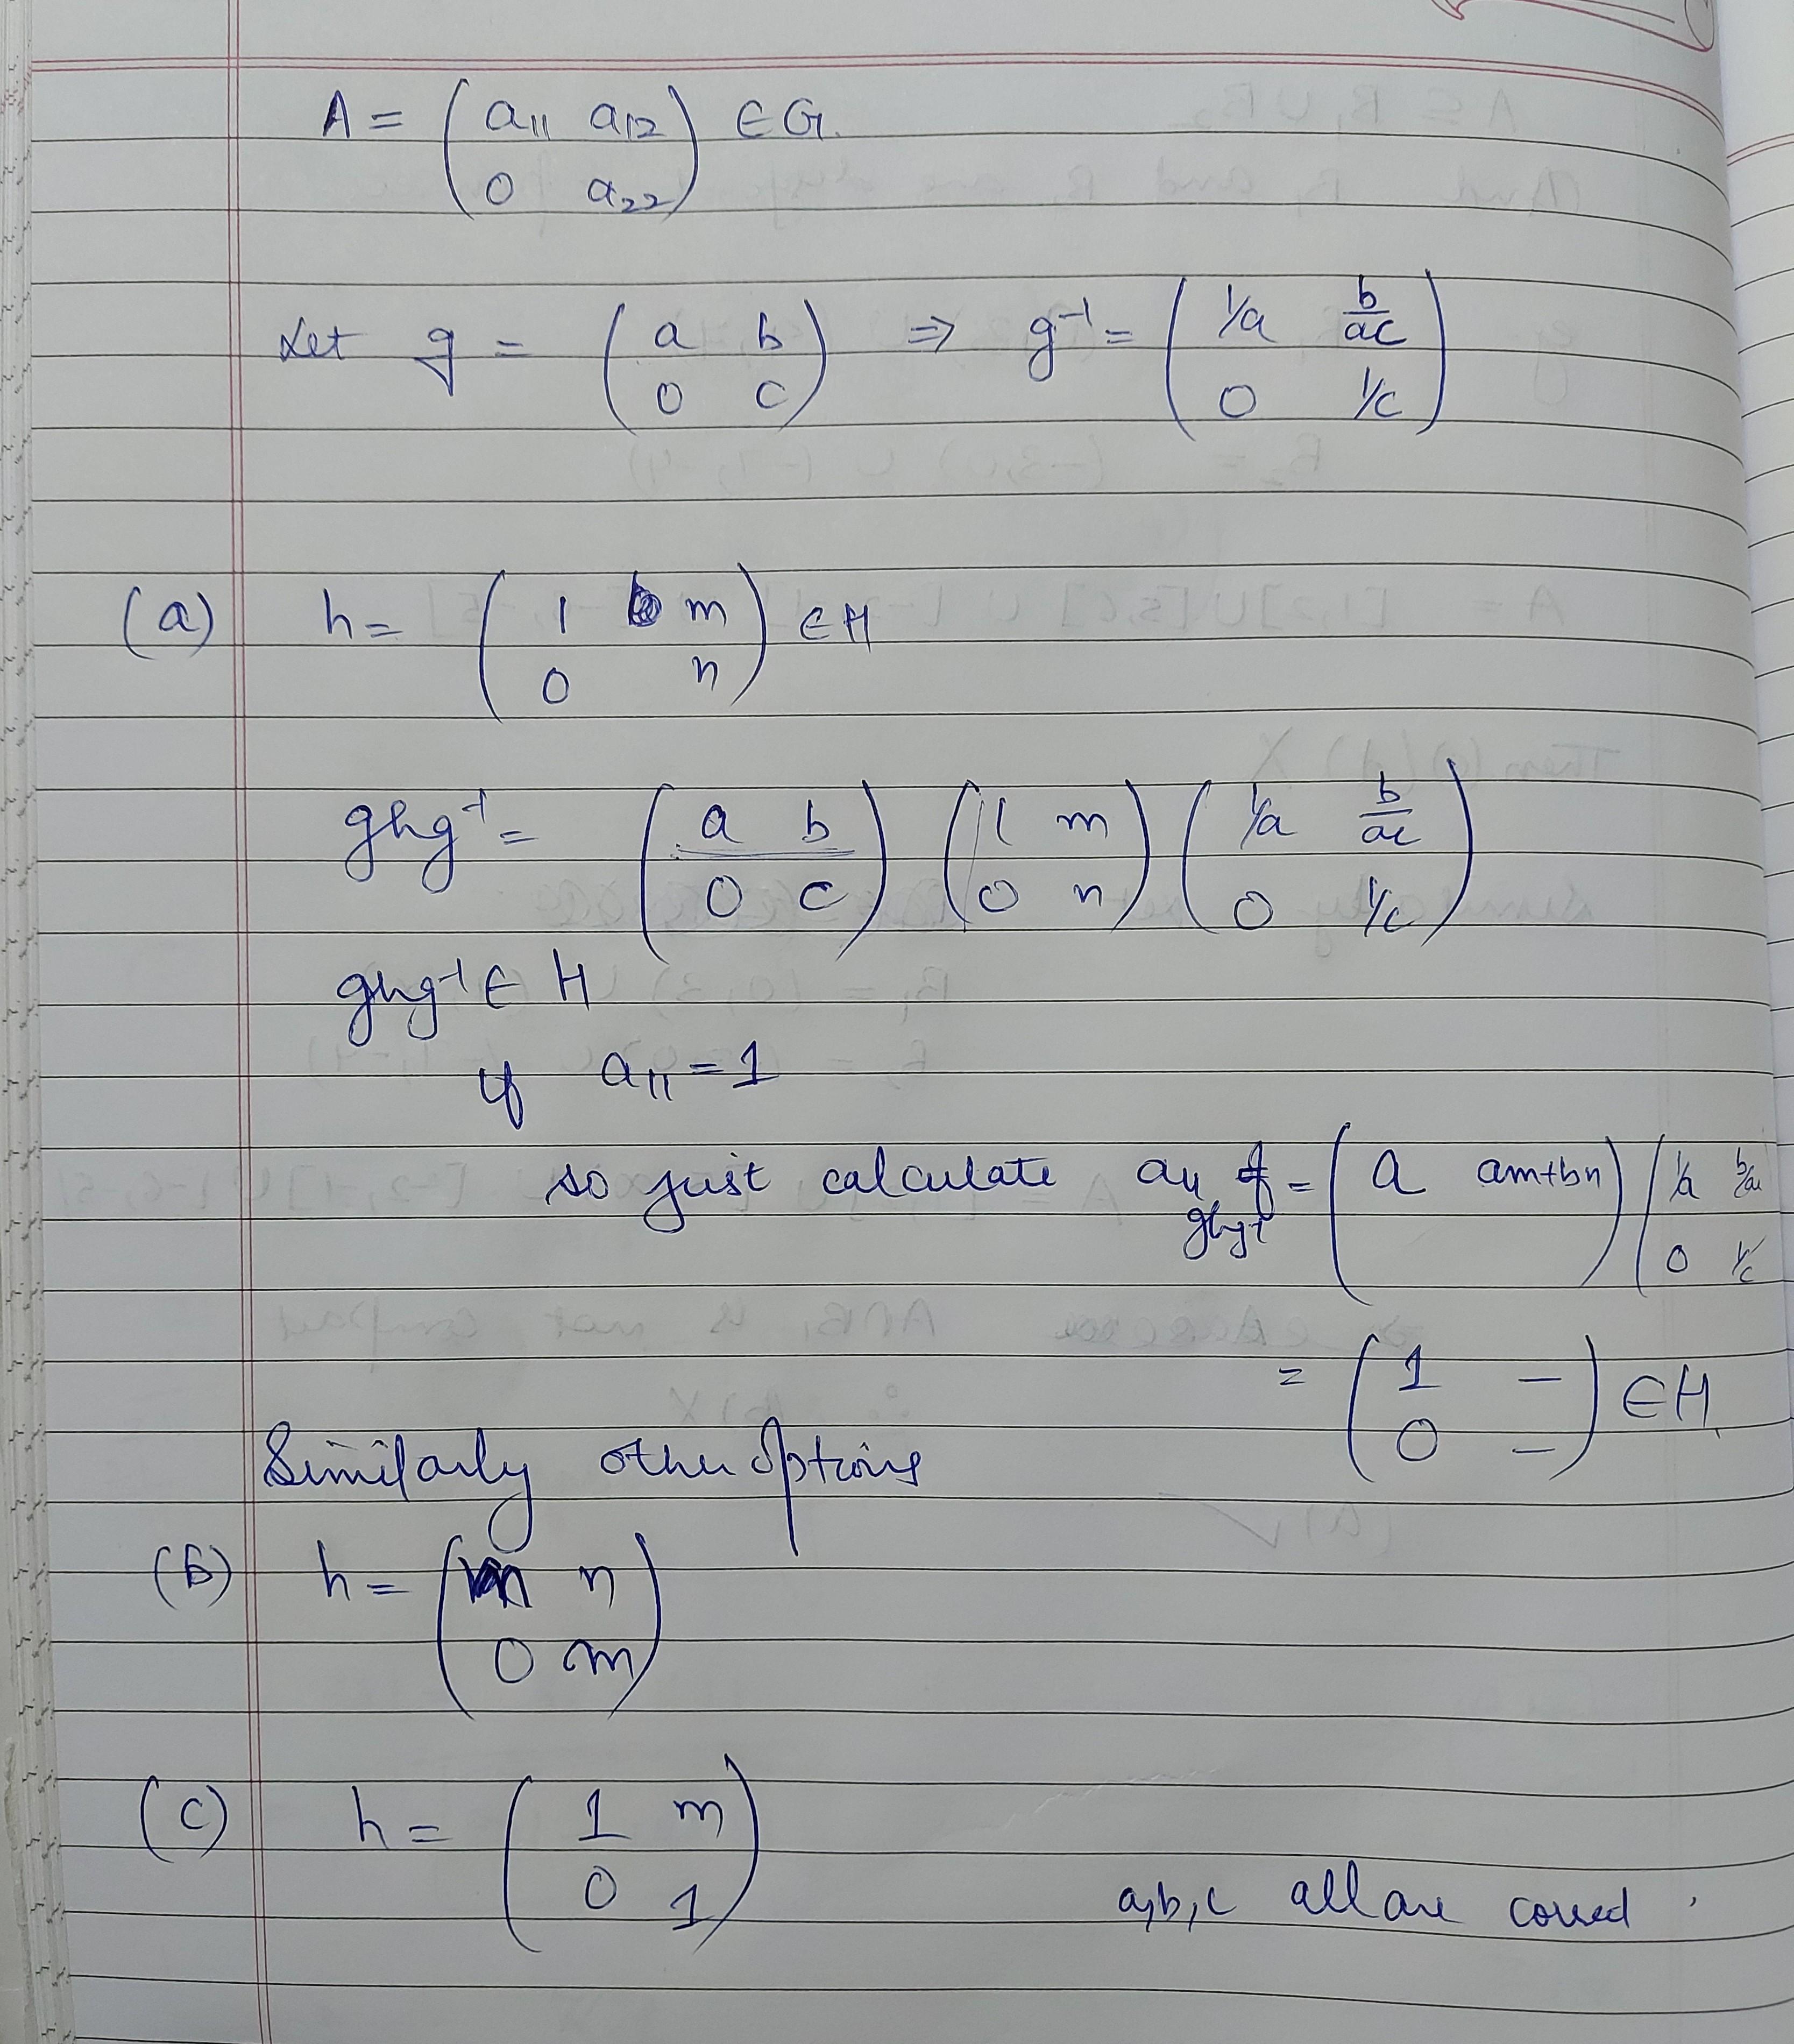 A = ( a11 a12 ) ∈ G.
( 0 a22 )
Let g = ( a b ) ⇒ g⁻¹ = ( 1/a b/ac )
( 0 c ) ( 0 1/c )
(a) h = ( 1 m ) ∈ H
( 0 n )
ghg⁻¹ = ( a b ) ( 1 m ) ( 1/a b/ac )
( 0 c ) ( 0 n ) ( 0 1/c )
ghg⁻¹ ∈ H
if a11 = 1
so just calculate a11 of ghg⁻¹ = ( a am+bn ) ( 1/a b/ac )
( 0 1/c )
= ( 1 – ) ∈ H
( 0 – )
Similarly other options
(b) h = ( m n )
( 0 m )
(c) h = ( 1 m )
( 0 1 )
a,b,c all are